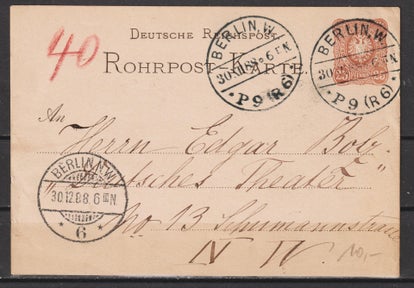 40
DEUTSCHE REICHSPOST
ROHRPOST-KARTE.
BERLIN, W.
30.12.88. 6 N
P9 (R6)
BERLIN, W.
30.12.88. 6 N
P9 (R6)
25
An
Herrn Edgar Bob.
Deutsches Theater
No 13 Schumannstrasse
N W
BERLIN, N.W.
30.12.88. 6 N
* 6 *
10,-